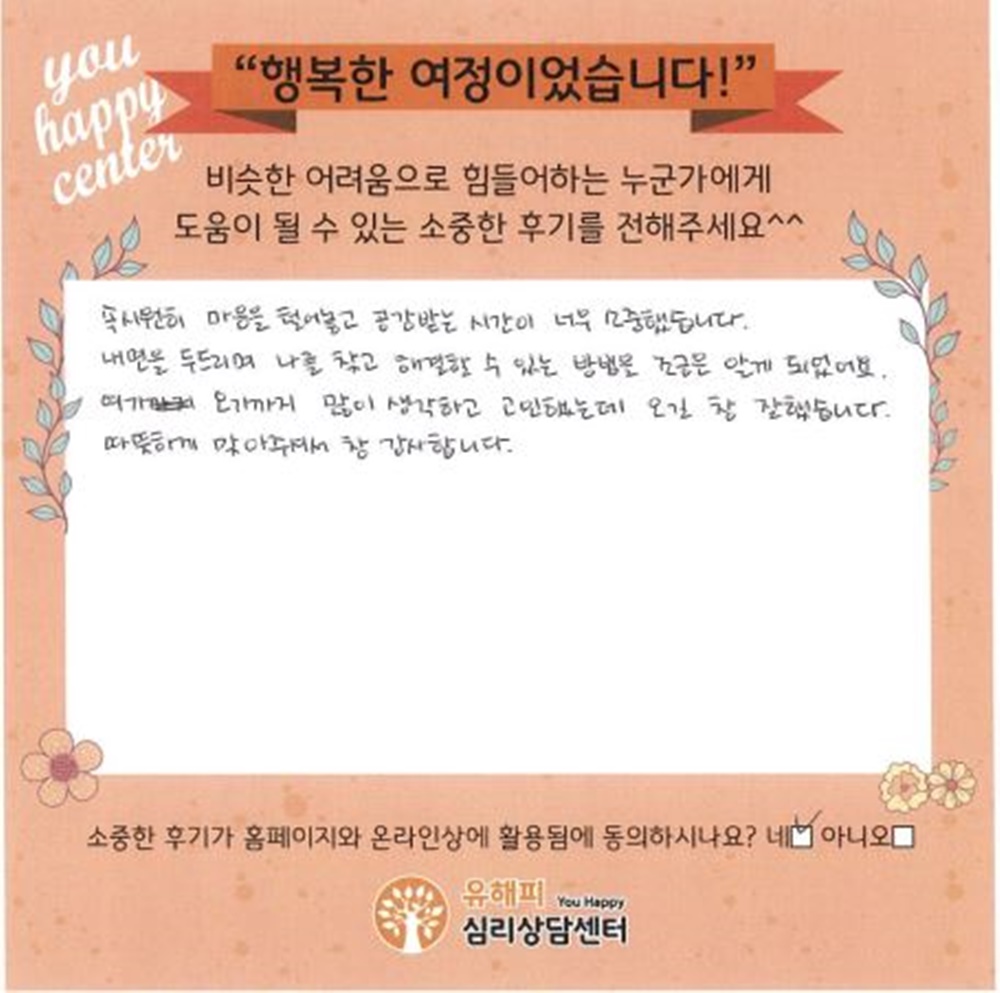 you
happy
center
“행복한 여정이었습니다!”
비슷한 어려움으로 힘들어하는 누군가에게
도움이 될 수 있는 소중한 후기를 전해주세요^^
속시원히 마음을 털어놓고 공감받는 시간이 너무 소중했습니다.
내면을 두드리며 나를 찾고 해결할 수 있는 방법을 조금은 알게 되었어요.
여기 오기까지 많이 생각하고 고민했는데 오길 참 잘했습니다.
따뜻하게 맞아주셔서 참 감사합니다.
소중한 후기가 홈페이지와 온라인상에 활용됨에 동의하시나요? 네 아니오
유해피 You Happy
심리상담센터